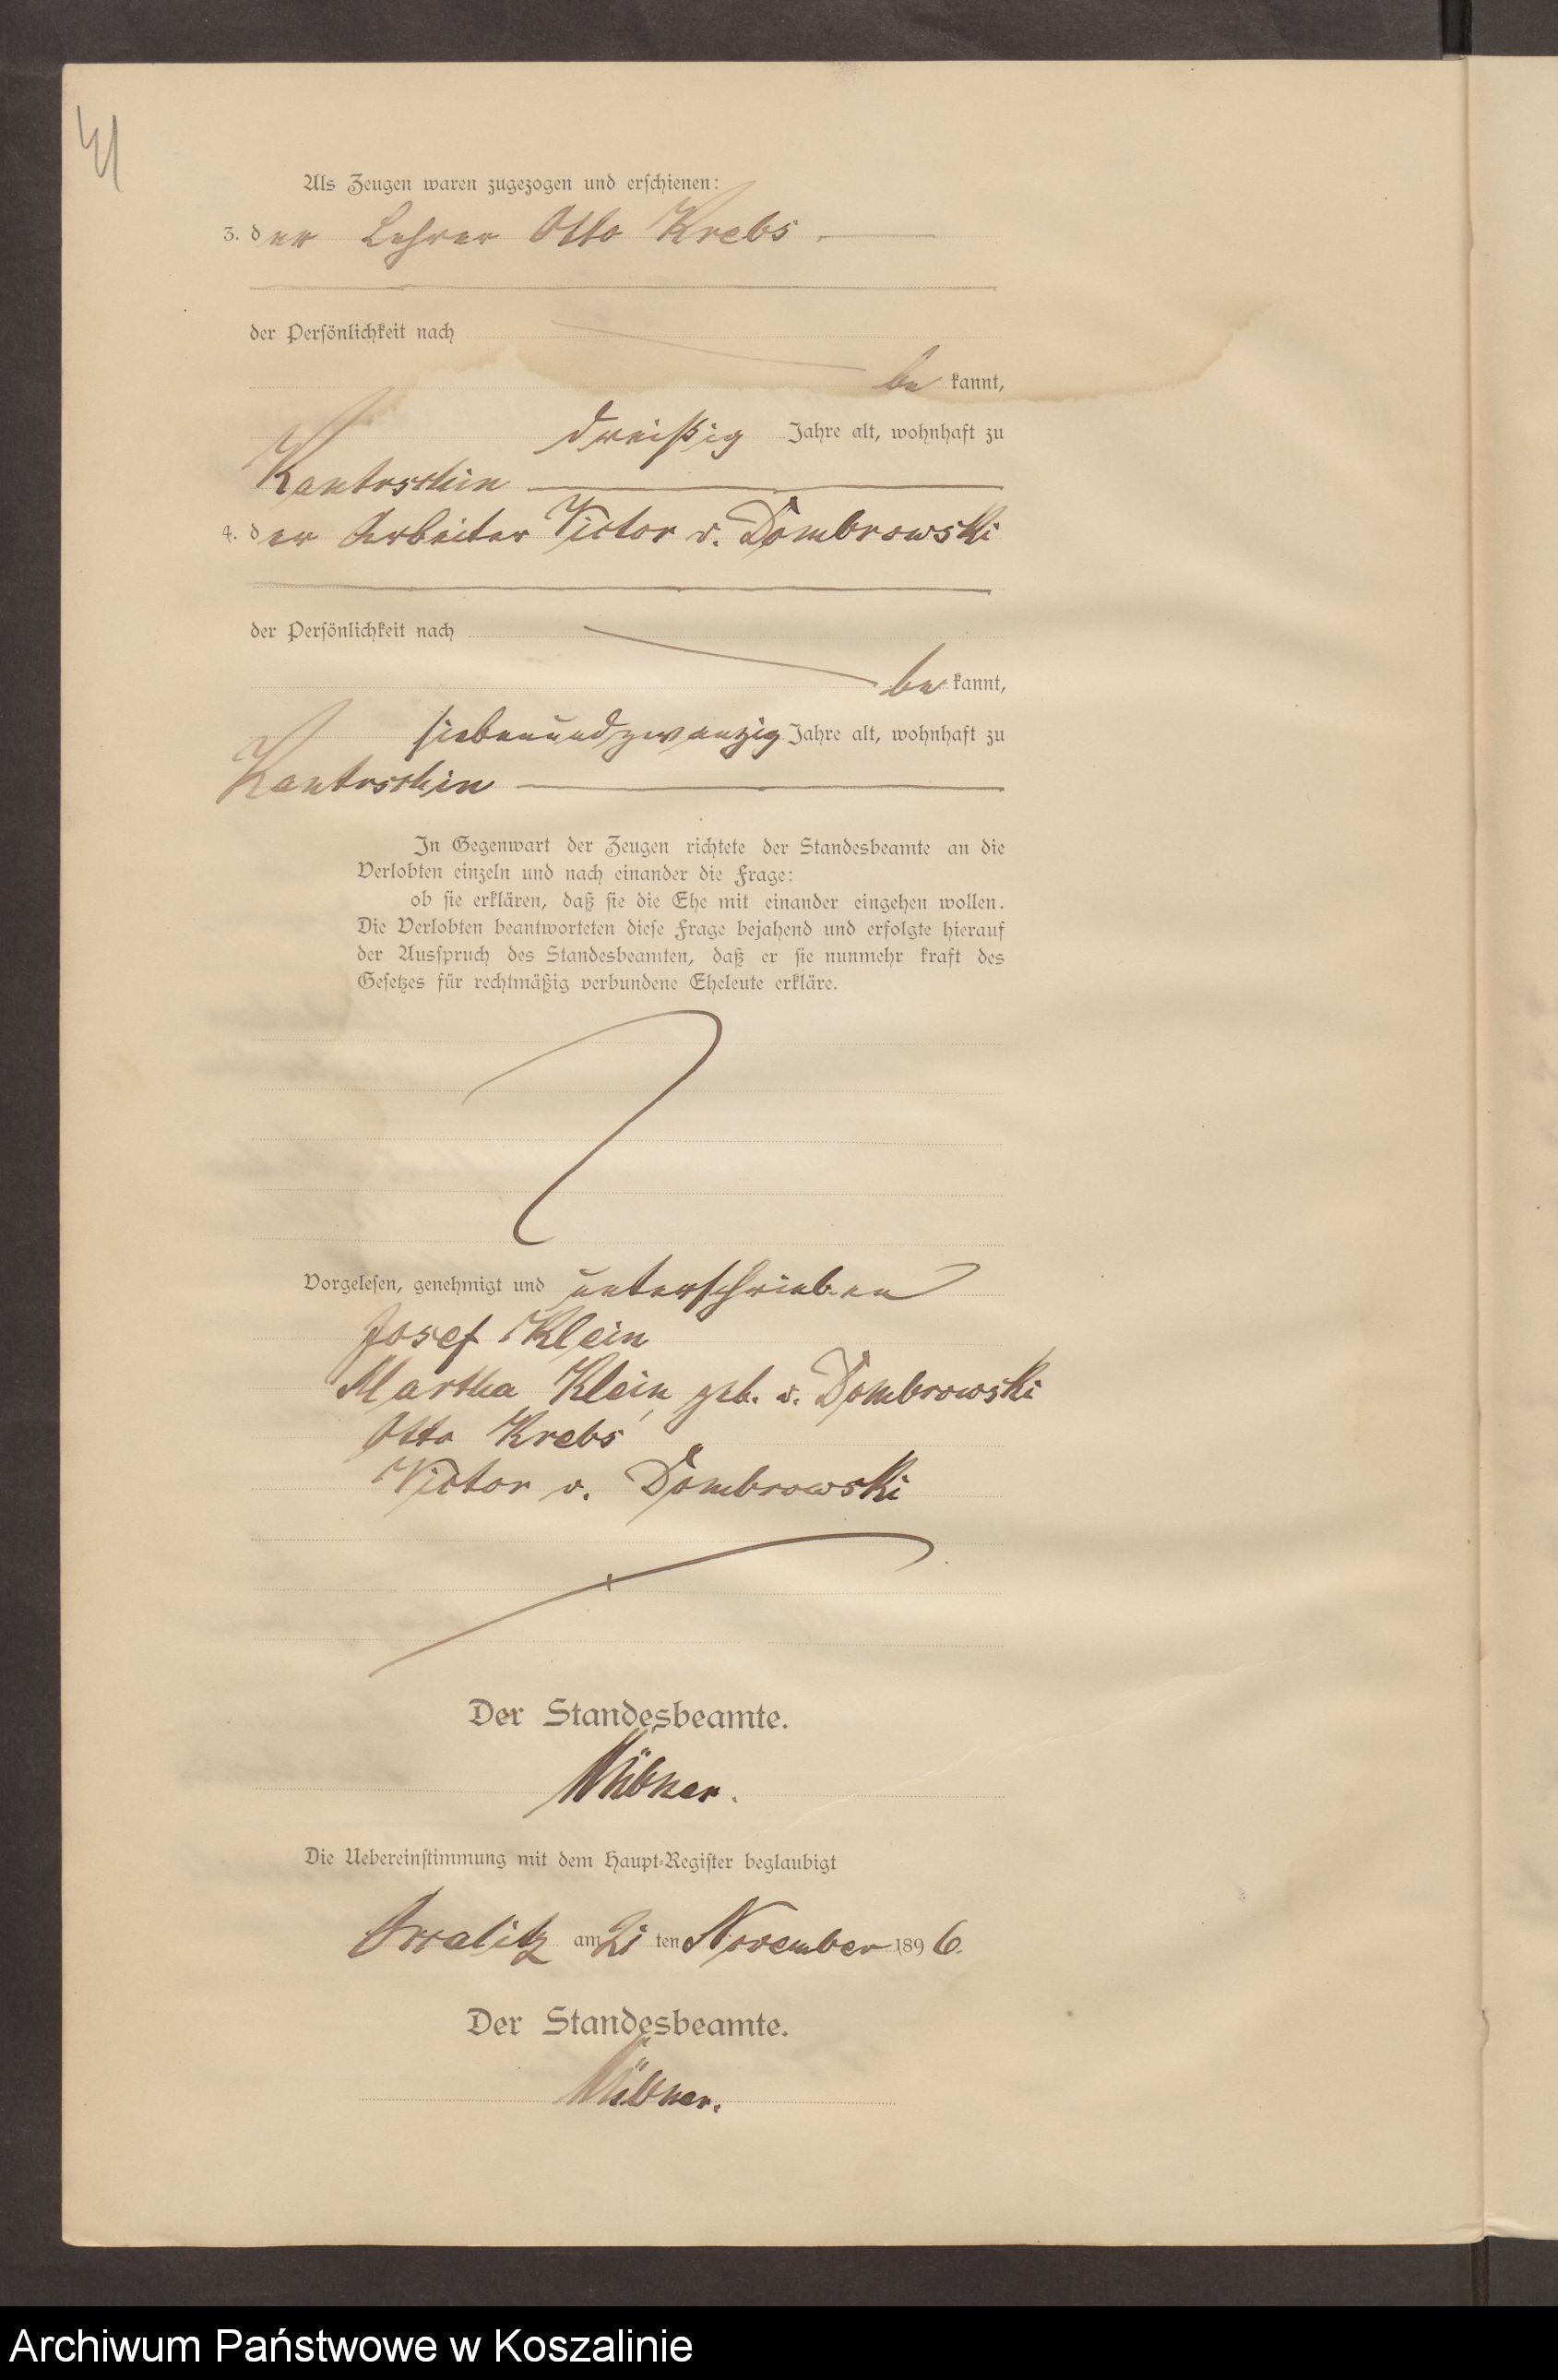 41
Als Zeugen waren zugezogen und erschienen:
3. der Lehrer Otto Krebs
der Persönlichkeit nach
be kannt,
dreißig Jahre alt, wohnhaft zu
Kantrschin
4. der Arbeiter Victor v. Dombrowski
der Persönlichkeit nach
be kannt,
siebenundzwanzig Jahre alt, wohnhaft zu
Kantrschin
In Gegenwart der Zeugen richtete der Standesbeamte an die
Verlobten einzeln und nach einander die Frage:
ob sie erklären, daß sie die Ehe mit einander eingehen wollen.
Die Verlobten beantworteten diese Frage bejahend und erfolgte hierauf
der Ausspruch des Standesbeamten, daß er sie nunmehr kraft des
Gesetzes für rechtmäßig verbundene Eheleute erkläre.
Vorgelesen, genehmigt und unterschrieben
Josef Klein
Martha Klein, geb. v. Dombrowski
Otto Krebs
Victor v. Dombrowski
Der Standesbeamte.
Die Uebereinstimmung mit dem Haupt-Register beglaubigt
am 21 ten November 1896.
Der Standesbeamte.
Archiwum Państwowe w Koszalinie